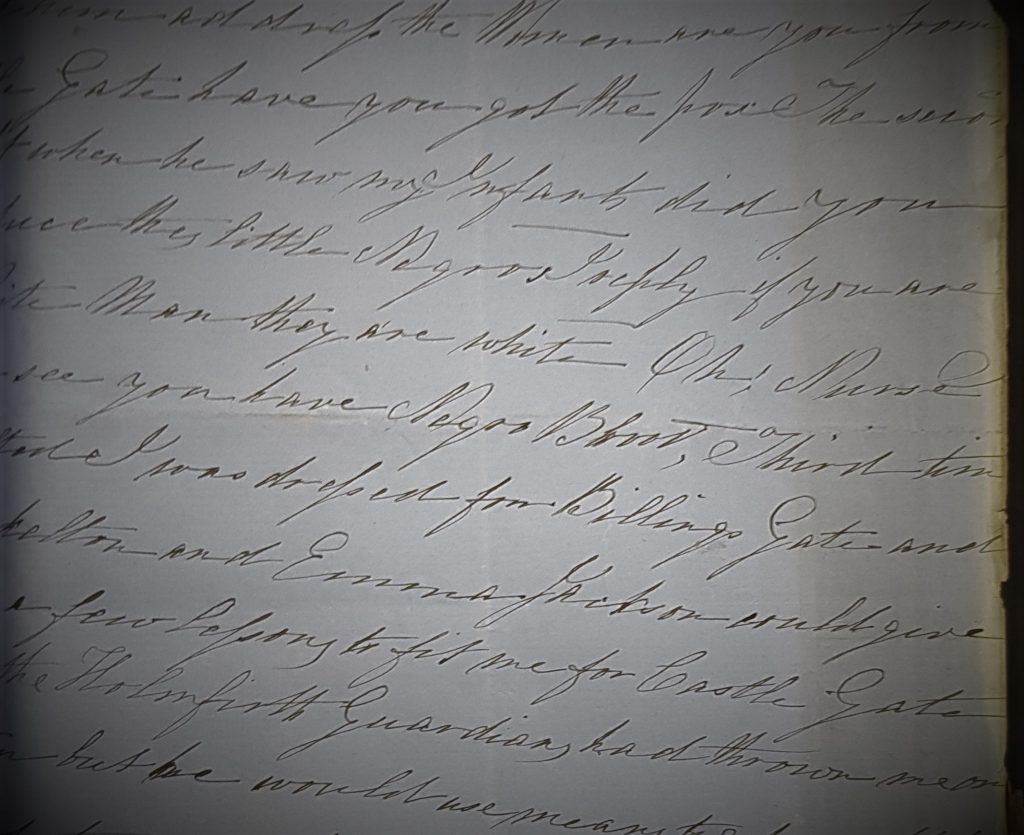 address the Women are you from
Gate have you got the pox The
when he saw my Infants did you
these little Negroes I reply if you are
Man they are white Oh! Nurse
see you have Negro Blood, Third time
I was dressed for Billings Gate and
and Emma Jackson could give
a few Lessons to fit me for Castle Gate
the Holmfirth Guardians had thrown me on
but he would use means to